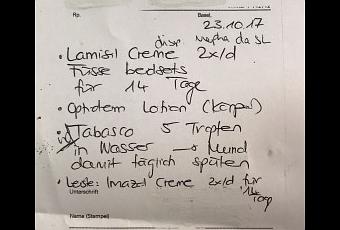 Rp.
Basel,
23.10.17
disp Mepha da SL
• Lamisil Creme 2x/d
Füsse bedseits
für 14 Tage
• Optiderm Lotion (Körper)
• Tabasco 5 Tropfen
in Wasser → Mund
damit täglich spülen
• Leiste: Imazol Creme 2x/d für
14 Tage
Unterschrift
Name (Stempel)